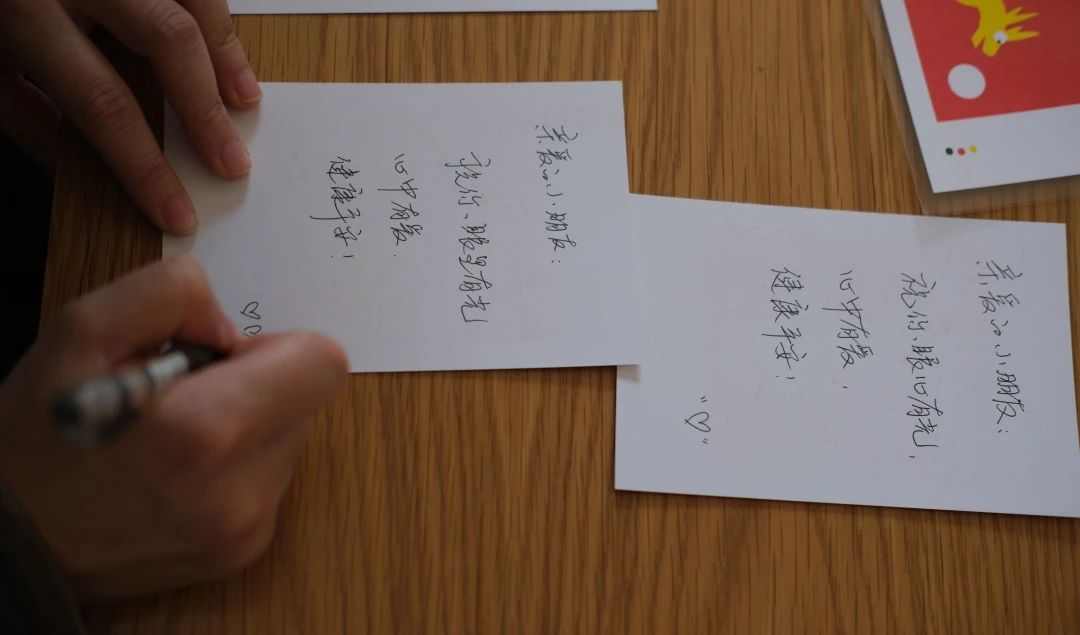 亲爱的小朋友：
祝你、眼里有光
心中有爱.
健康平安！
亲爱的小朋友：
祝你、眼心有光，
心中有爱，
健康平安！
"♡"